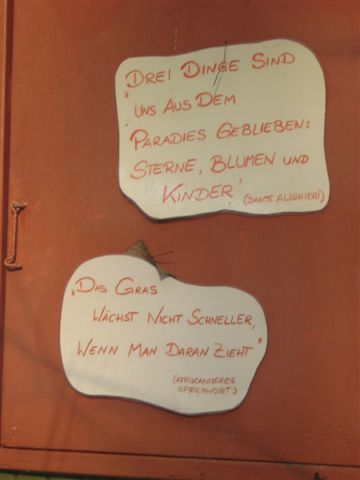 „Drei Dinge Sind
uns aus Dem
Paradies Geblieben:
Sterne, Blumen und
Kinder“
(Dante Alighieri)
„Das Gras
wächst nicht schneller,
wenn man daran zieht“
(Afrikanisches
Sprichwort)